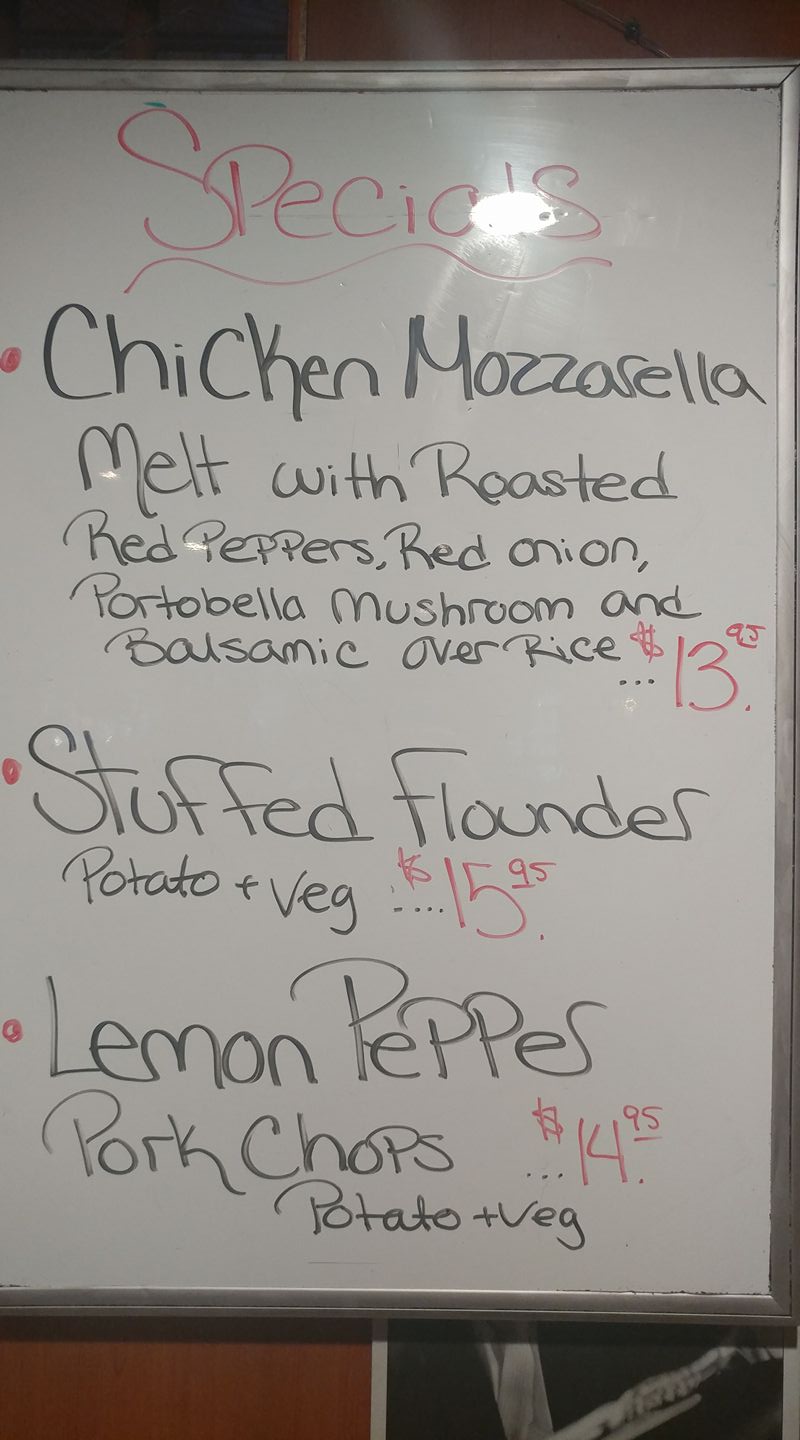 Specials
• Chicken Mozzarella
Melt with Roasted
Red Peppers, Red onion,
Portobella Mushroom and
Balsamic over Rice ... $13.95
• Stuffed flounder
Potato + Veg ..... $15.95
• Lemon Pepper
Pork Chops ... $14.95
Potato + Veg